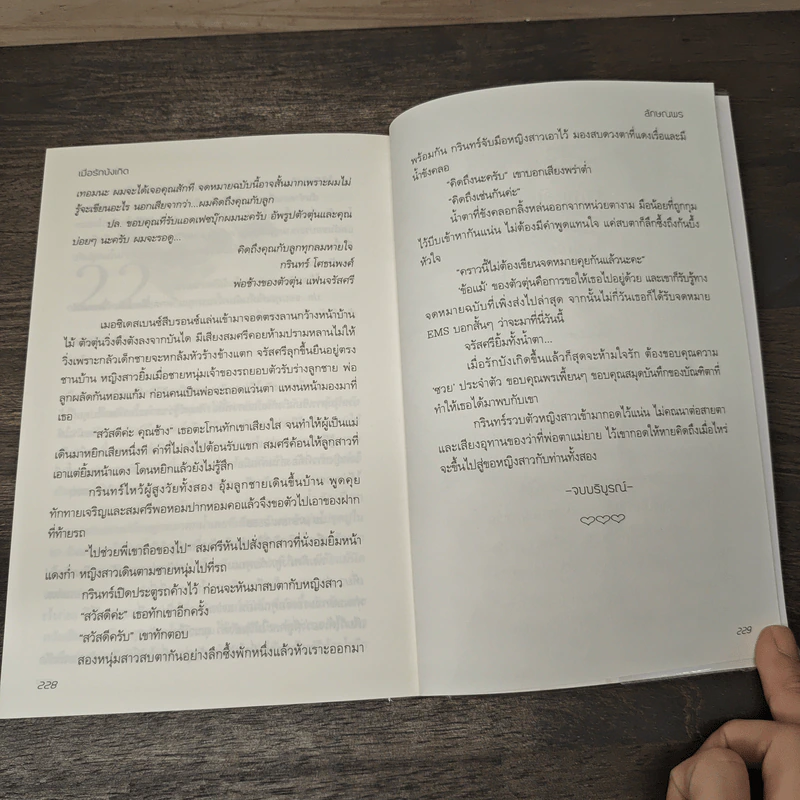 เมื่อรักบังเกิด
เทอมนะ ผมจะได้เจอคุณสักที จดหมายฉบับนี้อาจสั้นมากเพราะผมไม่
รู้จะเขียนอะไร นอกเสียจากว่า...ผมคิดถึงคุณกับลูก
ปล. ขอบคุณที่รับแอดเฟซบุ๊กผมนะครับ อัพรูปตัวตุ่นและคุณ
บ่อยๆ นะครับ ผมจะรอดู...
คิดถึงคุณกับลูกทุกลมหายใจ
กรินทร์ โศธนพงศ์
พ่อช้างของตัวตุ่น แฟนจรัสศรี
เมอซิเดสเบนซ์สีบรอนซ์แล่นเข้ามาจอดตรงลานกว้างหน้าบ้าน
ไม้ ตัวตุ่นวิ่งตึงตังลงจากบันได มีเสียงสมศรีคอยห้ามปรามหลานไม่ให้
วิ่งเพราะกลัวเด็กชายจะหกล้มหัวร้างข้างแตก จรัสศรีลุกขึ้นยืนอยู่ตรง
ชานบ้าน หญิงสาวยิ้มเมื่อชายหนุ่มเจ้าของรถยอบตัวรับร่างลูกชาย พ่อ
ลูกผลัดกันหอมแก้ม ก่อนคนเป็นพ่อจะถอดแว่นตา แหงนหน้ามองมาที่
เธอ
“สวัสดีค่ะ คุณช้าง” เธอตะโกนทักเขาเสียงใส จนทำให้ผู้เป็นแม่
เดินมาหยิกเสียหนึ่งที ค่าที่ไม่ลงไปต้อนรับแขก สมศรีค้อนให้ลูกสาวที่
เอาแต่ยิ้มหน้าแดง โดนหยิกแล้วยังไม่รู้สึก
กรินทร์ไหว้ผู้สูงวัยทั้งสอง อุ้มลูกชายเดินขึ้นบ้าน พูดคุย
ทักทายเจริญและสมศรีพอหอมปากหอมคอแล้วจึงขอตัวไปเอาของฝาก
ที่ท้ายรถ
“ไปช่วยพี่เขาถือของไป” สมศรีหันไปสั่งลูกสาวที่นั่งอมยิ้มหน้า
แดงก่ำ หญิงสาวเดินตามชายหนุ่มไปที่รถ
กรินทร์เปิดประตูรถค้างไว้ ก่อนจะหันมาสบตากับหญิงสาว
“สวัสดีค่ะ” เธอทักเขาอีกครั้ง
“สวัสดีครับ” เขาทักตอบ
สองหนุ่มสาวสบตากันอย่างลึกซึ้งพักหนึ่งแล้วหัวเราะออกมา
228
ลักษณพร
พร้อมกัน กรินทร์จับมือหญิงสาวเอาไว้ มองสบดวงตาที่แดงเรื่อและมี
น้ำขังคลอ
“คิดถึงนะครับ” เขาบอกเสียงพร่าต่ำ
“คิดถึงเช่นกันค่ะ”
น้ำตาที่ขังคลอกลิ้งหล่นออกจากหน่วยตางาม มือน้อยที่ถูกกุม
ไว้บีบเข้าหากันแน่น ไม่ต้องมีคำพูดแทนใจ แค่สบตาก็ลึกซึ้งถึงก้นบึ้ง
หัวใจ
“คราวนี้ไม่ต้องเขียนจดหมายคุยกันแล้วนะคะ”
‘ข้อแม้’ ของตัวตุ่นคือการขอให้เธอไปอยู่ด้วย และเขาก็รับรู้ทาง
จดหมายฉบับที่เพิ่งส่งไปล่าสุด จากนั้นไม่กี่วันเธอก็ได้รับจดหมาย
EMS บอกสั้นๆ ว่าจะมาที่นี่วันนี้
จรัสศรียิ้มทั้งน้ำตา...
เมื่อรักบังเกิดขึ้นแล้วก็สุดจะห้ามใจรัก ต้องขอบคุณความ
‘ซวย’ ประจำตัว ขอบคุณพรเพี้ยนๆ ขอบคุณสมุดบันทึกของบัณฑิตาที่
ทำให้เธอได้มาพบกับเขา
กรินทร์รวบตัวหญิงสาวเข้ามากอดไว้แน่น ไม่คณนาต่อสายตา
และเสียงอุทานของว่าที่พ่อตาแม่ยาย ไว้เขากอดให้หายคิดถึงเมื่อไหร่
จะขึ้นไปสู่ขอหญิงสาวกับท่านทั้งสอง
–จบบริบูรณ์–
229